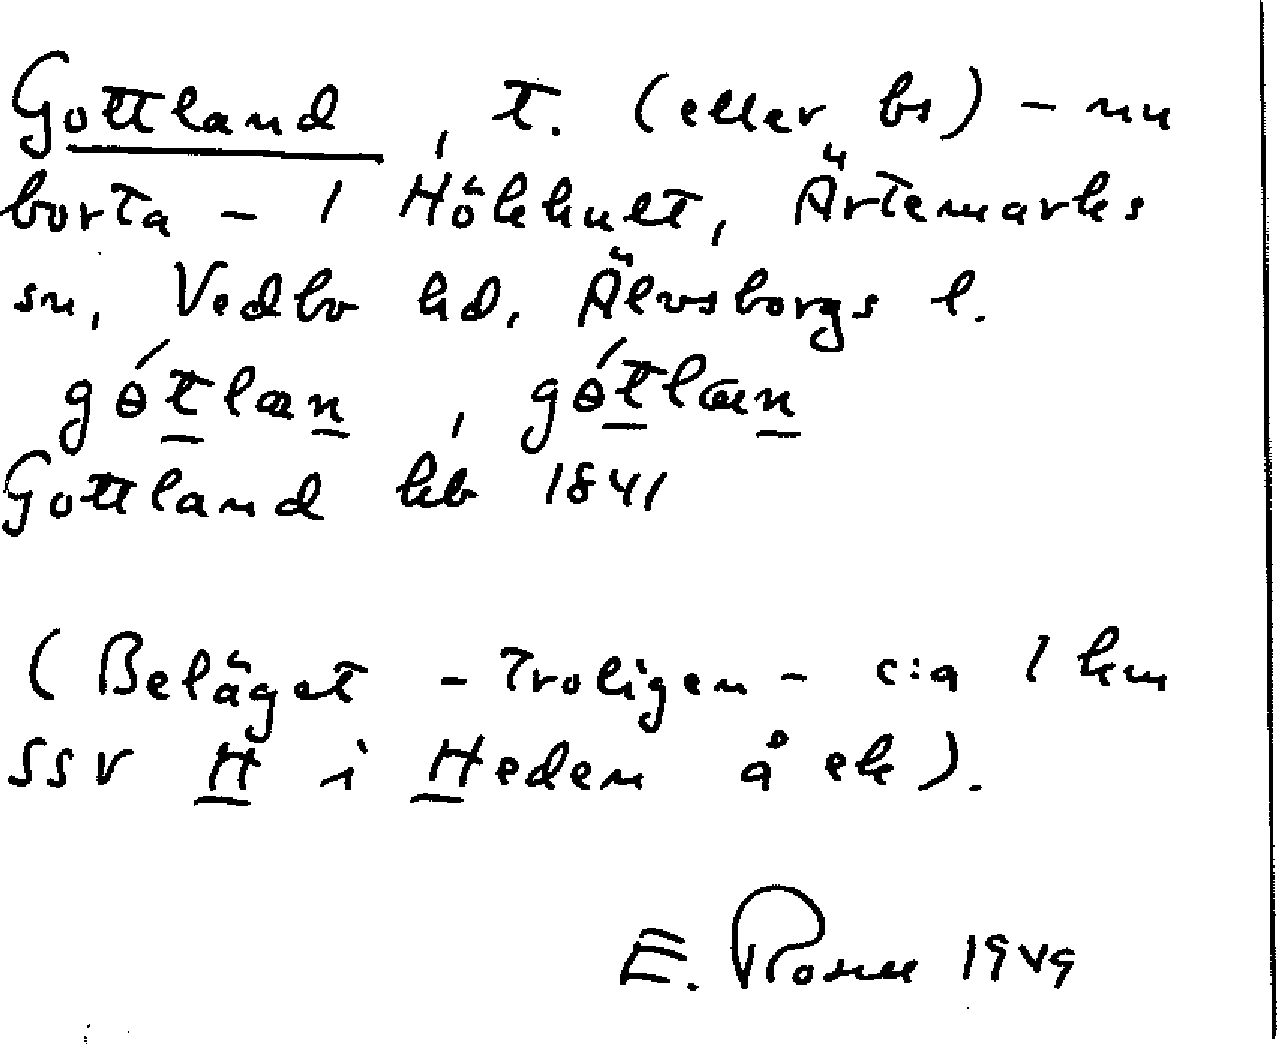 Gottland, t. (eller bs) - nu
borta - i Hökhult, Ärtemarks
sn, Vedbo hd, Älvsborgs l.
gó̵tlan, gó̵tlæn
Gottland kb 1841
(Beläget - troligen - c:a 1 km
SSV H i Heden å ek).
E. Rosell 1949